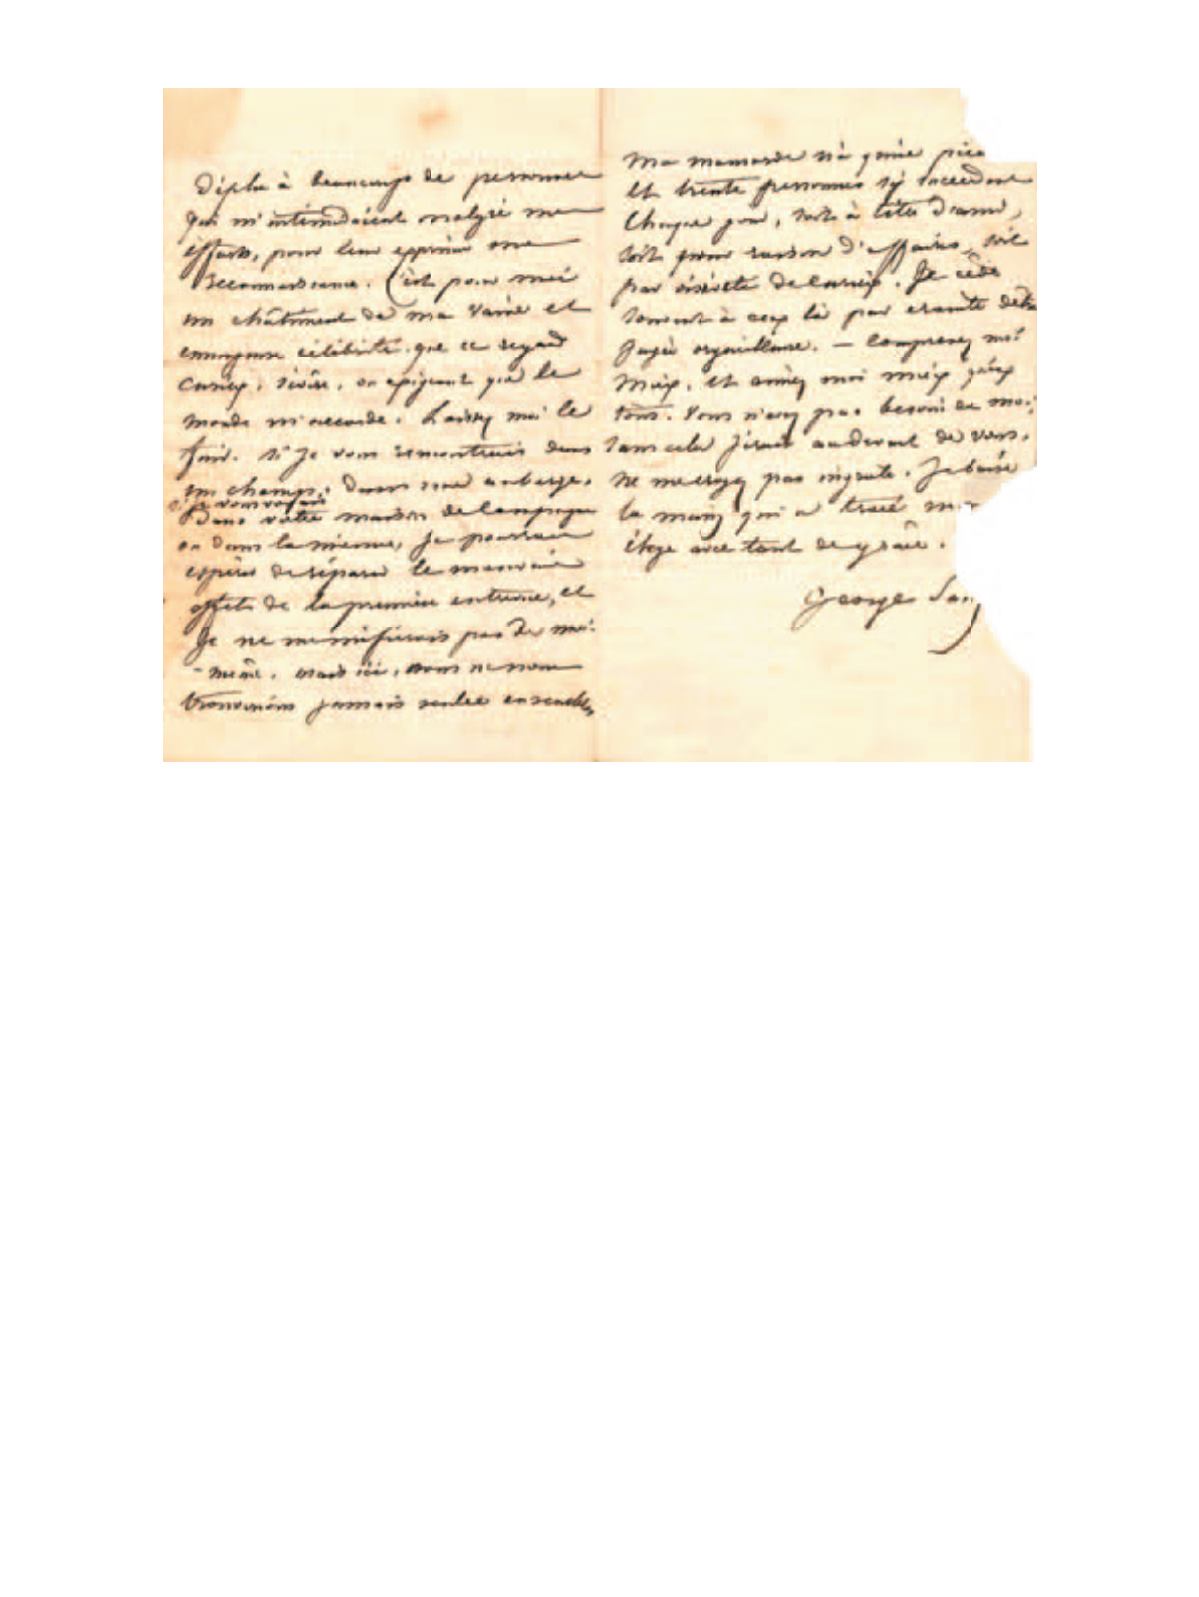 déplu à beaucoup de personnes
qui m'intimidaient malgré mes
efforts, pour leur exprimer ma
reconnaissance. C'est pour moi
un châtiment de ma vaine et
ennuyeuse célébrité que ce regard
curieux, sévère, ou exigeant que le
monde m'accorde. Laissez moi le
fuir. Si je vous rencontrais dans
un champ, dans une auberge,
si je vous voyais
dans votre maison de campagne
ou dans la mienne, je pourrais
espérer de réparer le mauvais
effet de la première entrevue, et
je ne me méfierais pas de moi
-même. mais ici, nous ne nous
trouverions jamais seules ensemble,
Ma mansarde n'a qu'une
et trente personnes s'y succèdent
chaque jour, soit à titre d'amis,
soit pour raison d'affaires, soit
par oisiveté de curieux. Je cède
souvent à ceux là par crainte d'être
jugée orgueilleuse. — Comprenez moi
mieux, et aimez moi mieux qu'eux
tous. Vous n'avez pas besoin de moi,
sans cela j'irais au devant de vous.
Ne me croyez pas ingrate. Je baise
la main qui a tracé mon
éloge avec tant de grâce.
George San